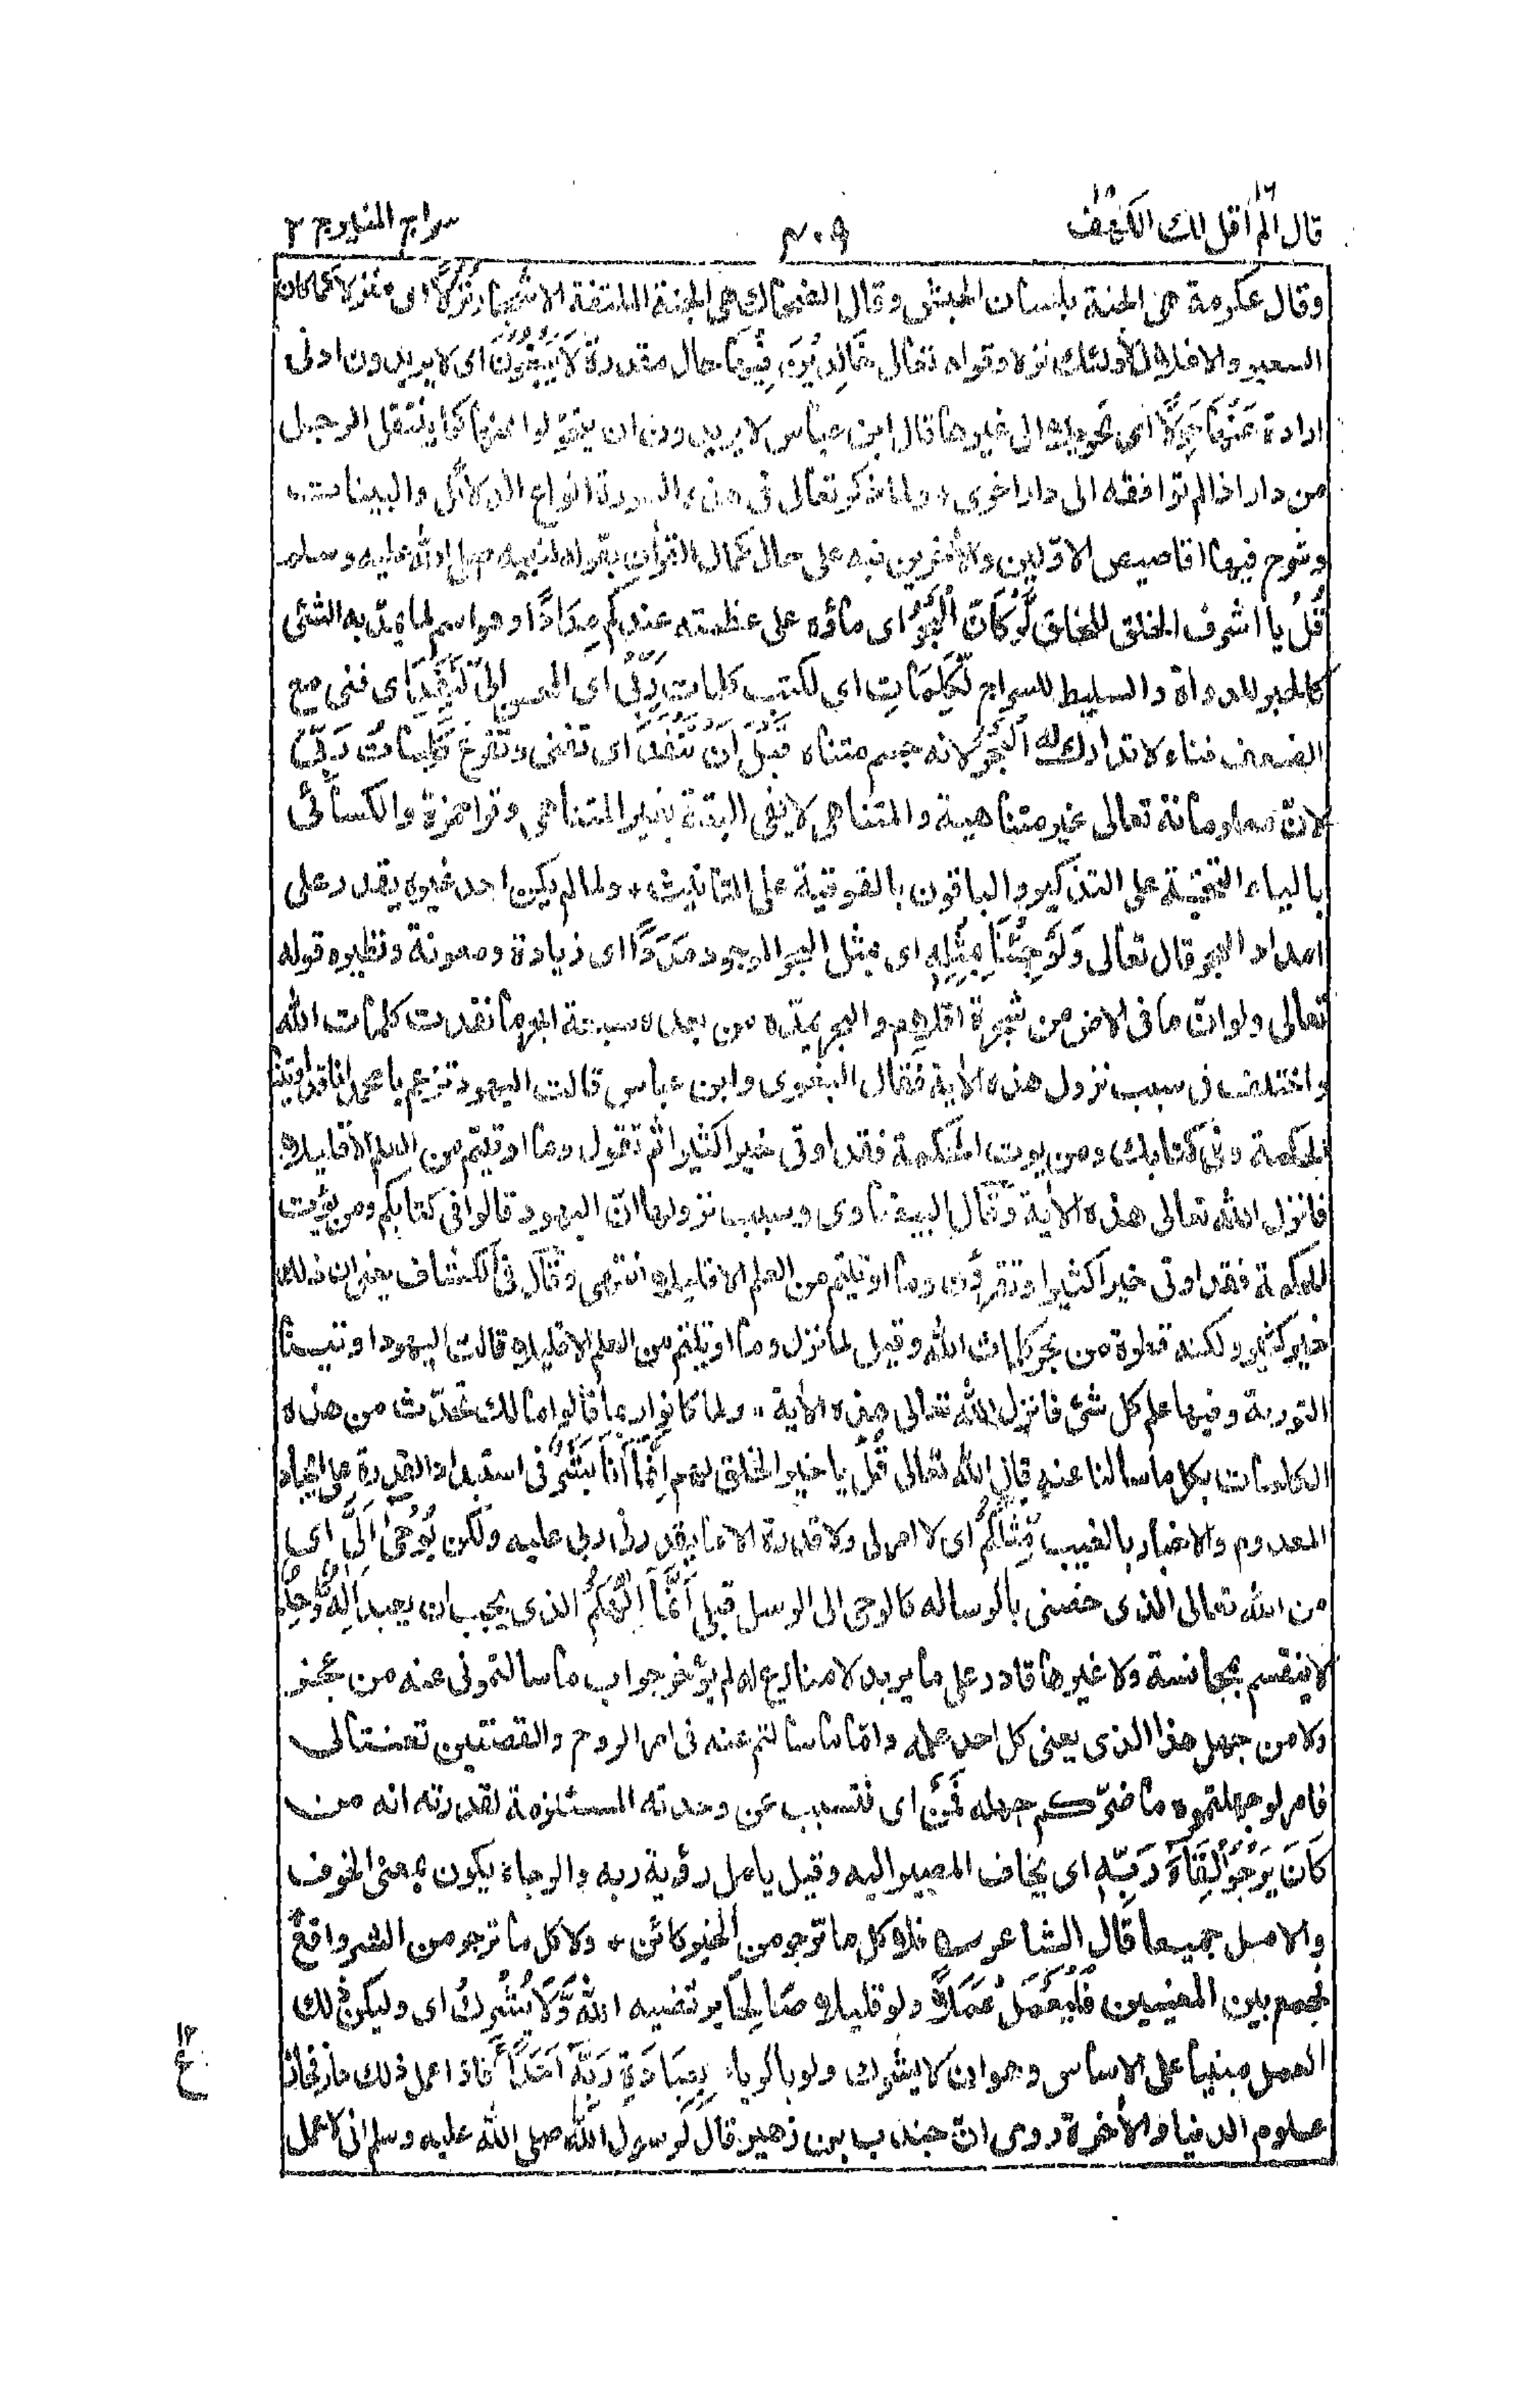 قال الم اقل لك ١٦ الكهف ١٨
٤٠٩
سراج المنير ج ٢
وقال عكرمة هى الجنة بلسان الحبش وقال الضحاك هى الجنة الملتفة الاشجار نُزُلًا اى منزلا كما كان
السعير والاغلال لأولئك نزلا وقوله تعالى خَالِدِيْنَ فِيْهَا حال مقدرة لَا يَبْغُوْنَ اى لا يريدون ادنى
ارادة عَنْهَا حِوَلًا اى تحويلا الى غيرها قال ابن عباس لا يريدون ان يتحولوا عنها كما ينتقل الرجل
من دار اذا لم توافقه الى دار اخرى ولما ذكر تعالى فى هذه السورة انواع الدلائل والبينات
وشرح فيها اقاصيص الاولين والأخرين نبه على حال كمال القرأن بقوله لنبيه صلى الله عليه وسلم
قُلْ يا اشرف الخلق للخلق لَّوْ كَانَ الْبَحْرُ اى ماؤه على عظمته عندكم مِدَادًا وهو اسم لما يمد به الشئ
كالحبر للدواة والسليط للسراج لِّكَلِمَاتِ اى لكتب كلمات رَبِّىْ اى المحسن الىّ لَنَفِدَ اى فنى مع
الضعف فناء لا تدارك له الْبَحْرُ لانه جسم متناه قَبْلَ اَنْ تَنْفَدَ اى تفنى وتفرغ كَلِمَاتُ رَبِّىْ
لانّ معلوماته تعالى غير متناهية والمتناهى لا يفى البتة بغير المتناهى وقرا حمزة والكسائى
بالياء التحتية على التذكير والباقون بالفوقية على التانيث ولما لم يكن احد غيره يقدر على
امداد البحر قال تعالى وَلَوْ جِئْنَا بِمِثْلِهِ اى بمثل البحر الموجود مَدَدًا اى زيادة ومعونة ونظيره قوله
تعالى ولو انّ ما فى الارض من شجرة اقلام والبحر يمدّه من بعده سبعة ابحر ما نفدت كلمات الله
واختلف فى سبب نزول هذه الأية فقال البغوى وابن عباس قالت اليهود تزعم يا محمد انا قد اوتينا
الحكمة وفى كتابك ومن يوت الحكمة فقد اوتى خيرا كثيرا ثم تقول وما اوتيتم من العلم الا قليلا
فانزل الله تعالى هذه الأية وقال البيضاوى وسبب نزولها انّ اليهود قالوا فى كتابكم ومن يؤت
الحكمة فقد اوتى خيرا كثيرا وتقرؤن وما اوتيتم من العلم الا قليلا انتهى وقال فى الكشاف يعنى ان ذلك
خير كثير ولكنه قطرة من بحر كلمات الله وقيل لما نزل وما اوتيتم من العلم الا قليلا قالت اليهود اوتينا
التورية وفيها علم كل شئ فانزل الله تعالى هذه الأية ولما كانوا ربما قالوا مالك تحدّث من هذه
الكلمات بكل ما سالنا عنه قال الله تعالى قُلْ يا خير الخلق لهم اِنَّمَا اَنَا بَشَرٌ فى استبداد القدرة على ايجاد
المعدوم والاخبار بالغيب مِّثْلُكُمْ اى لا امر لى ولا قدرة الا ما يقدرنى ربى عليه ولكن يُوْحٰى اِلَيَّ اى
من الله تعالى الذى خصنى بالرساله كالوحى الى الرسل قبلى اَنَّمَا اِلٰهُكُمْ الذى يجب ان يعبد اِلٰهٌ وَّاحِدٌ
لا ينقسم بمجانسة ولا غيرها قادر على ما يريد لا منازع له لم يؤخر جواب ما سالتمونى عنه من عجز
ولا من جهل هذا الذى يعنى كل احد علمه واما ما سالتم عنه فى امر الروح والقصتين تعنتا لى
فامر لو جهلتموه ما ضرّكم جهله فَمَنْ اى فتسبب عن وحدته المستلزمة لقدرته انه من
كَانَ يَرْجُوْ لِقَاءَ رَبِّهٖ اى يخاف المصير اليه وقيل يامل رؤية ربه والرجاء يكون بمعنى الخوف
والامل جميعا قال الشاعر فلا كل ما ترجو من الخير كائن ولا كل ما ترجو من الشر واقع
فجمع بين المعنيين فَلْيَعْمَلْ عَمَلًا ولو قليلا صَالِحًا يرتضيه الله وَّلَا يُشْرِكْ اى وليكن ذلك
العمل مبنيا على الاساس وهو ان لا يشرك ولو بالرياء بِعِبَادَةِ رَبِّهٖ اَحَدًا فاذا عمل ذلك حاز فخار
علوم الدنيا والأخرة روى انّ جندب بن زهير قال لرسول الله صلى الله عليه وسلم انى لاعمل
١٢
ع